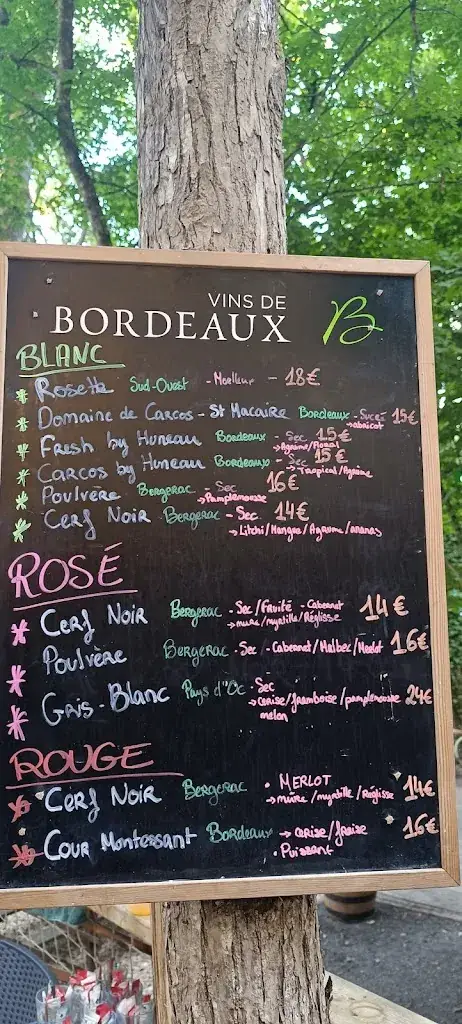 VINS DE
BORDEAUX B
BLANC
Rosette Sud-Ouest - Moelleux - 18€
Domaine de Carcos - St Macaire Bordeaux - Sucré 15€
→ abricot
Fresh by Huneau Bordeaux - Sec 15€
→ Agrume/Floral
Carcos by Huneau Bordeaux - Sec 15€
→ Tropical/Agrume
Poulvère Bergerac - Sec 16€
→ Pamplemousse
Cerf Noir Bergerac - Sec 14€
→ Litchi/Mangue/Agrume/ananas
ROSÉ
Cerf Noir Bergerac - Sec/Fruité - Cabernet 14€
→ mure/myrtille/Réglisse
Poulvère Bergerac - Sec - Cabernet/Malbec/Merlot 16€
Gris-Blanc Pays d'Oc - Sec
→ cerise/framboise/pamplemousse 24€
melon
ROUGE
Cerf Noir Bergerac • MERLOT 14€
→ mure/myrtille/Réglisse
Cour Montessant Bordeaux → cerise/fraise 16€
• Puissant